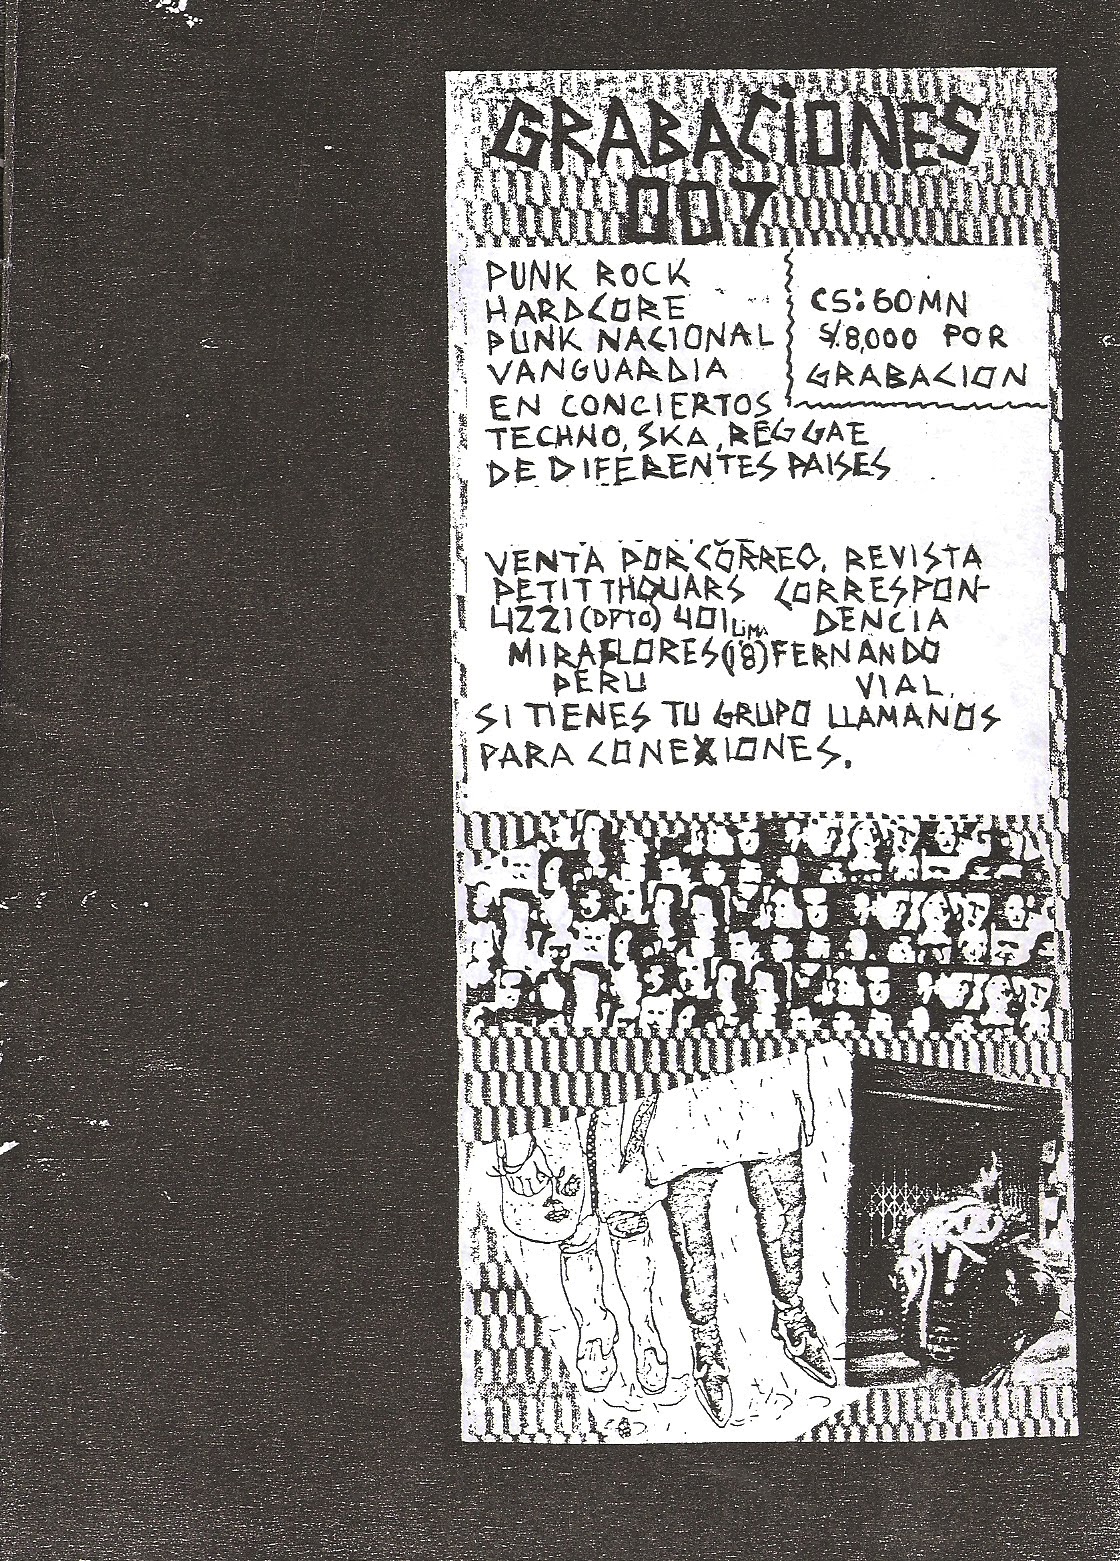 GRABACiONES
007
PUNK ROCK
HARDCORE
PUNK NACIONAL
VANGUARDIA
EN CONCIERTOS
TECHNO, SKA, REGGAE
DE DIFERENTES PAISES
CS: 60 MN
S/. 8,000 POR
GRABACION
VENTA POR CORREO. REVISTA
PETITTHOUARS CORRESPON-
4221 (DPTO) 401 LIMA DENCIA
MIRAFLORES (18) FERNANDO
PERU VIAL.
SI TIENES TU GRUPO LLAMANOS
PARA CONEXIONES.